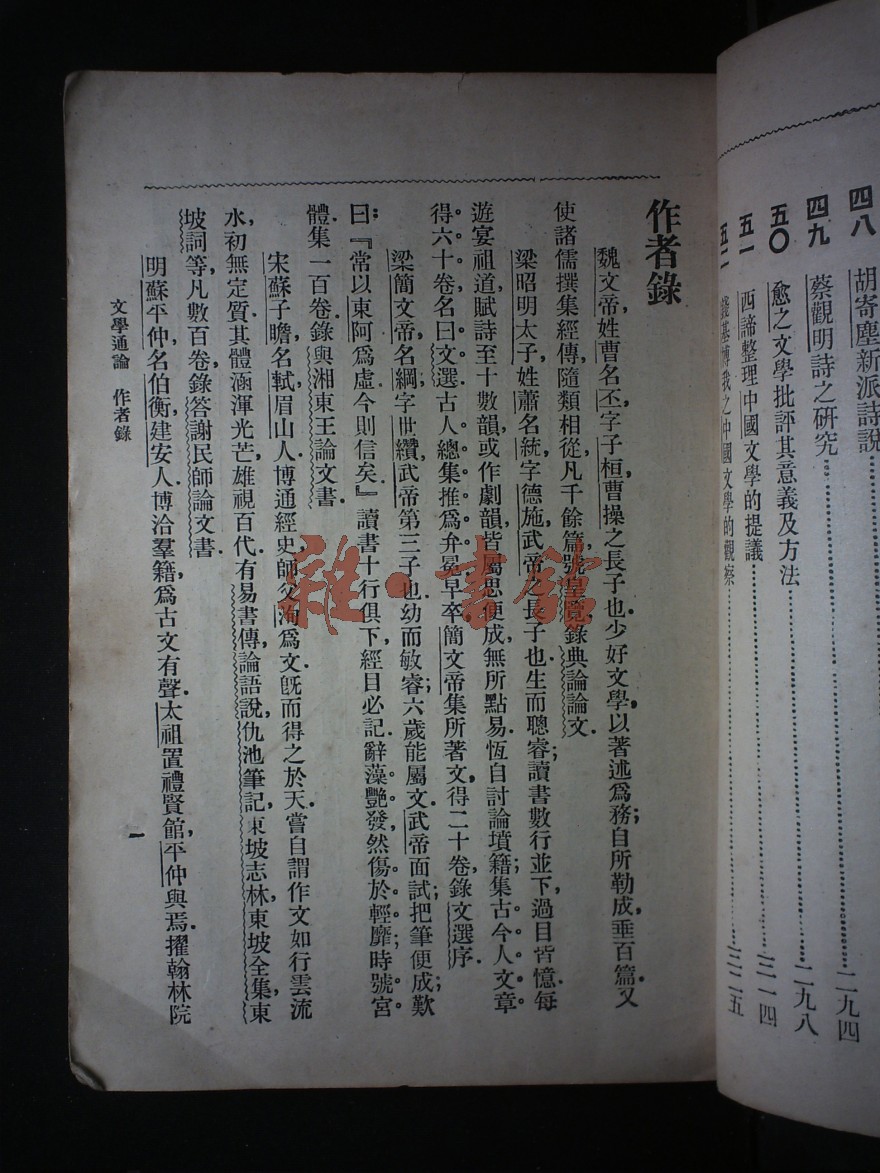 四八 胡寄塵新派詩說 二九四
四九 蔡觀明詩之研究 二九八
五〇 愈之文學批評其意義及方法
五一 西諦整理中國文學的提議 三一四
五二 錢基博我之中國文學的觀察 三二五
作者錄
魏文帝姓曹名丕,字子桓,曹操之長子也.少好文學,以著述爲務;自所勒成,垂百篇.又
使諸儒撰集經傳,隨類相從,凡千餘篇,號皇覽.錄典論論文.
梁昭明太子,姓蕭名統,字德施,武帝之長子也.生而聰睿;讀書數行並下,過目皆憶.每
遊宴祖道,賦詩至十數韻,或作劇韻,皆屬思便成,無所點易.恆自討論墳籍;集古今人文章
得六十卷,名曰文選.古人總集,推爲弁冕.早卒.簡文帝集所著文,得二十卷.錄文選序.
梁簡文帝名綱,字世纘,武帝第三子也.幼而敏睿;六歲能屬文.武帝面試,把筆便成;歎
曰:『常以東阿爲虛,今則信矣.』讀書十行俱下,經目必記.辭藻艷發,然傷於輕靡;時號宮
體.集一百卷.錄與湘東王論文書.
宋蘇子瞻名軾,眉山人.博通經史.師父洵爲文,旣而得之於天.嘗自謂作文如行雲流
水,初無定質.其體涵渾光芒,雄視百代.有易書傳,論語說,仇池筆記,東坡志林,東坡全集,東
坡詞等,凡數百卷.錄答謝民師論文書.
明蘇平仲名伯衡,建安人.博洽羣籍,爲古文有聲.太祖置禮賢館,平仲與焉.擢翰林院
文學通論 作者錄
一
雜·書館